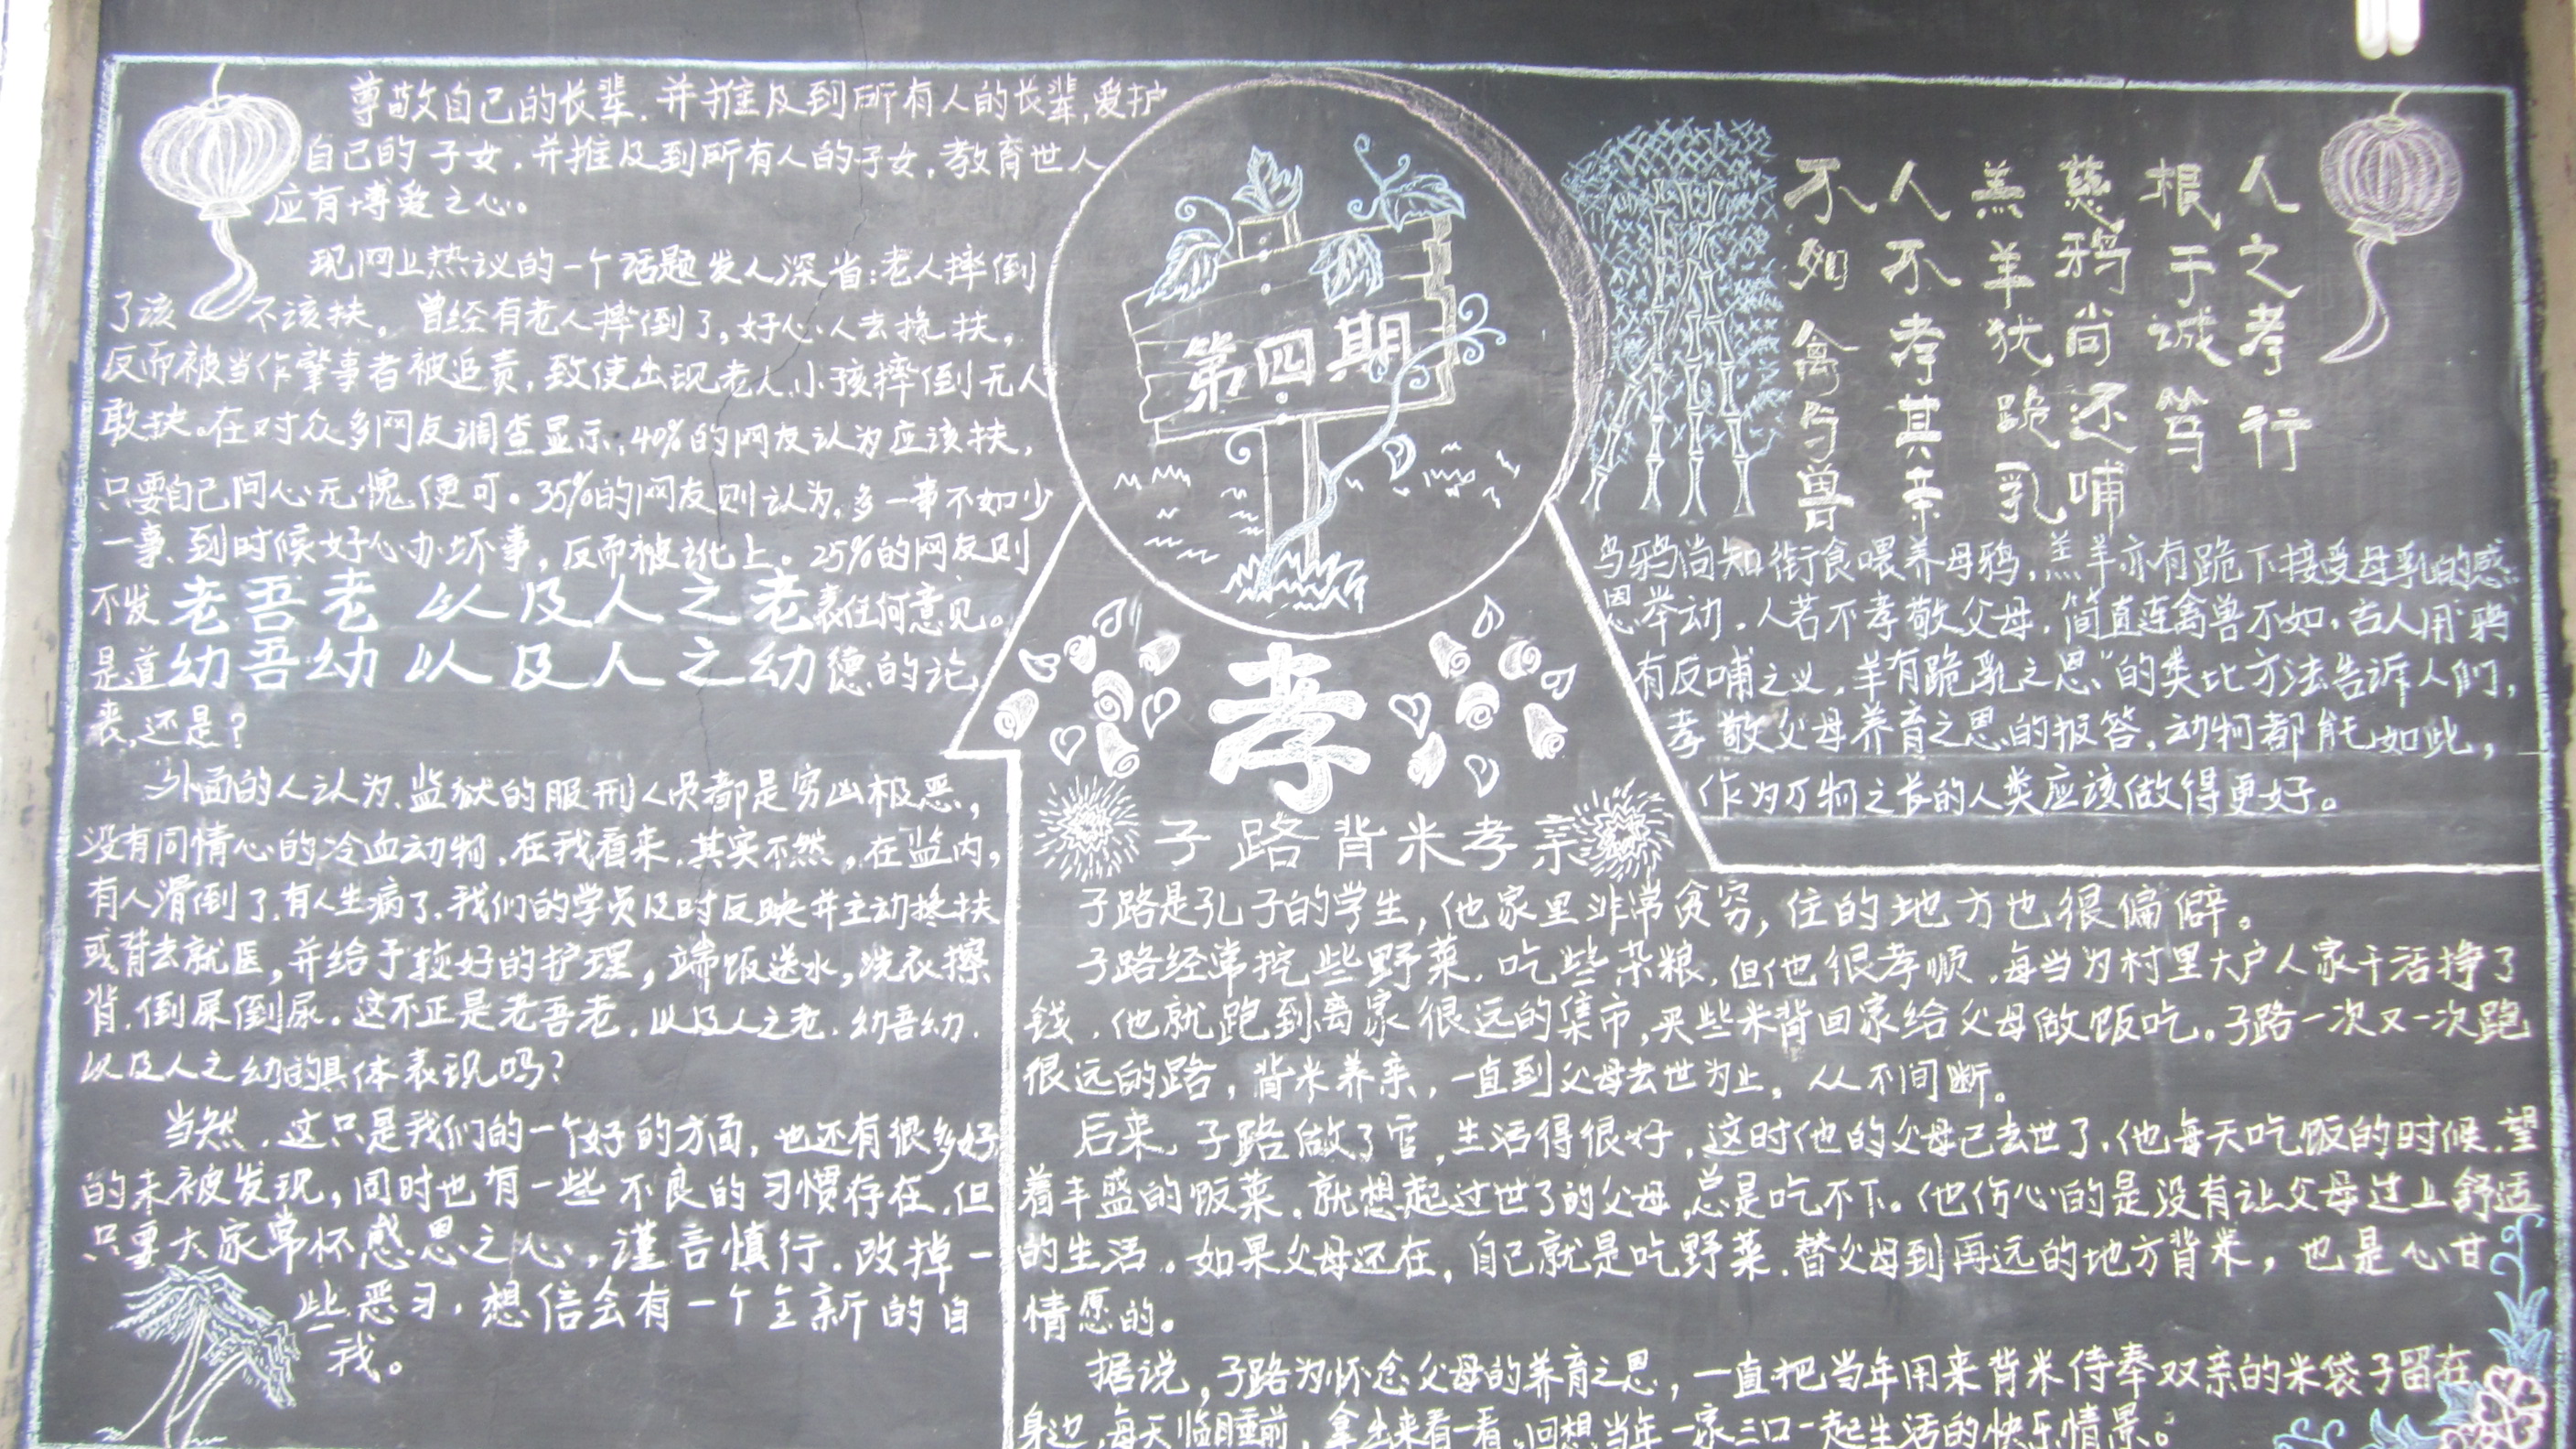 尊敬自己的长辈，并推及到所有人的长辈，爱护
自己的子女，并推及到所有人的子女，教育世人
应有博爱之心。
现网上热议的一个话题发人深省：老人摔倒
了该不该扶。曾经有老人摔倒了，好心人去搀扶，
反而被当作肇事者被追责，致使出现老人、小孩摔倒无人
敢扶。在对众多网友调查显示，40%的网友认为应该扶，
只要自己问心无愧便可。35%的网友则认为，多一事不如少
一事，到时候好心办坏事，反而被讹上。25%的网友则
不发表任何意见。
老吾老 以及人之老
是道德的论
幼吾幼 以及人之幼
丧，还是？
外面的人认为，监狱的服刑人员都是穷凶极恶，
没有同情心的冷血动物，在我看来，其实不然，在监内，
有人滑倒了，有人生病了，我们的学员及时反映并主动搀扶
或背去就医，并给予较好的护理，端饭送水，洗衣擦
背，倒屎倒尿。这不正是老吾老，以及人之老，幼吾幼，
以及人之幼的具体表现吗？
当然，这只是我们的一个好的方面，也还有很多好
的未被发现，同时也有一些不良的习惯存在，但
只要大家常怀感恩之心，谨言慎行，改掉一
些恶习，想信会有一个全新的自
我。
第四期
孝
人之孝行
根于诚笃
慈鸦尚还哺
羔羊犹跪乳
人不孝其亲
不如禽与兽
乌鸦尚知衔食喂养母鸦，羔羊亦有跪下接受母乳的感
恩举动，人若不孝敬父母，简直连禽兽不如，古人用“鸦
有反哺之义，羊有跪乳之恩”的类比方法告诉人们，
孝敬父母养育之恩的报答，动物都能如此，
作为万物之长的人类应该做得更好。
子路背米孝亲
子路是孔子的学生，他家里非常贫穷，住的地方也很偏僻。
子路经常挖些野菜，吃些杂粮，但他很孝顺，每当为村里大户人家干活挣了
钱，他就跑到离家很远的集市，买些米背回家给父母做饭吃。子路一次又一次跑
很远的路，背米养亲，一直到父母去世为止，从不间断。
后来，子路做了官，生活得很好，这时他的父母已去世了，他每天吃饭的时候，望
着丰盛的饭菜，就想起过世了的父母，总是吃不下。他伤心的是没有让父母过上舒适
的生活。如果父母还在，自己就是吃野菜，替父母到再远的地方背米，也是心甘
情愿的。
据说，子路为怀念父母的养育之恩，一直把当年用来背米侍奉双亲的米袋子留在
身边，每天临睡前，拿出来看一看，回想当年一家三口一起生活的快乐情景。